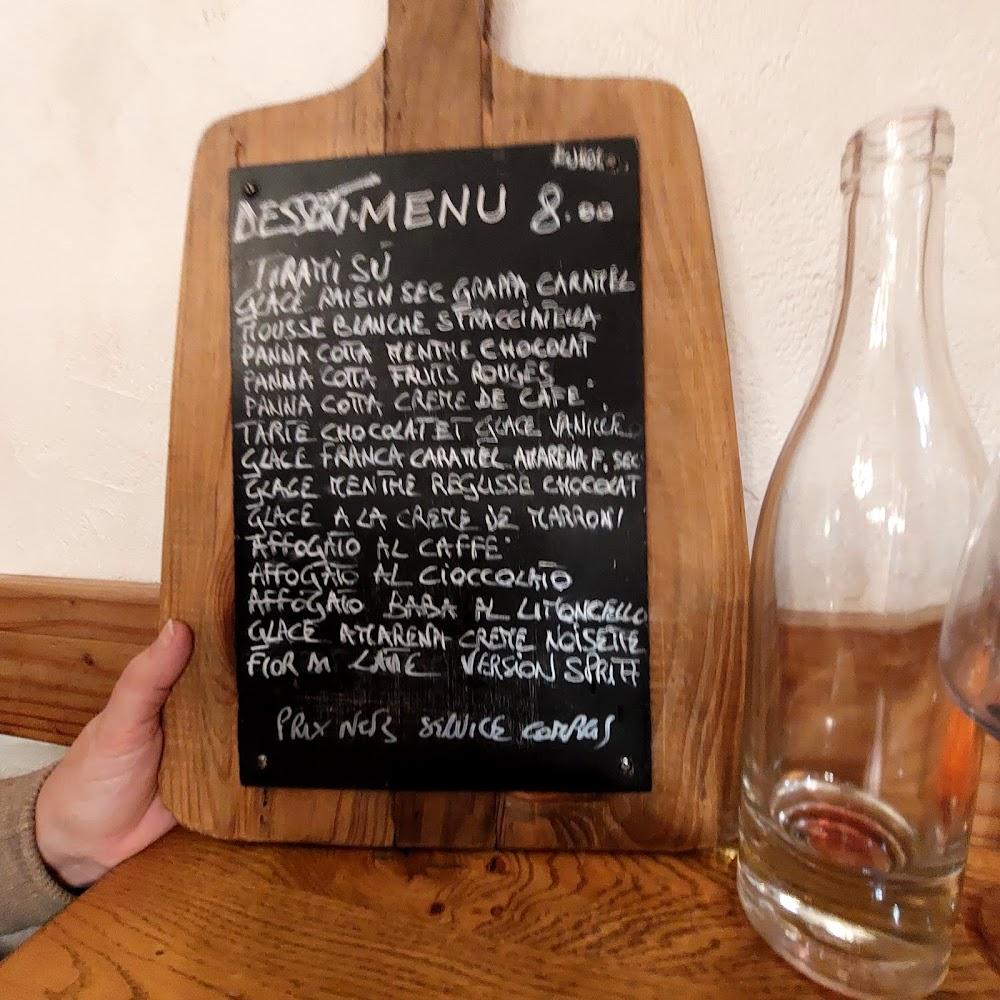 DESSERT MENU 8.00
TIRAMI SÙ
GLACE RAISIN SEC GRAPPA CARAMEL
MOUSSE BLANCHE STRACCIATELLA
PANNA COTTA MENTHE CHOCOLAT
PANNA COTTA FRUITS ROUGES
PANNA COTTA CREME DE CAFE
TARTE CHOCOLAT ET GLACE VANILLE
GLACE FRANCA CARAMEL AMARENA F. SEC
GLACE MENTHE REGLISSE CHOCOLAT
GLACE A LA CREME DE MARRONI
AFFOGATO AL CAFFE'
AFFOGATO AL CIOCCOLATO
AFFOGATO BABA AL LIMONCELLO
GLACE AMARENA CREME NOISETTE
FIOR DI LATTE VERSION SPRITZ
PRIX NETS SERVICE COMPRIS